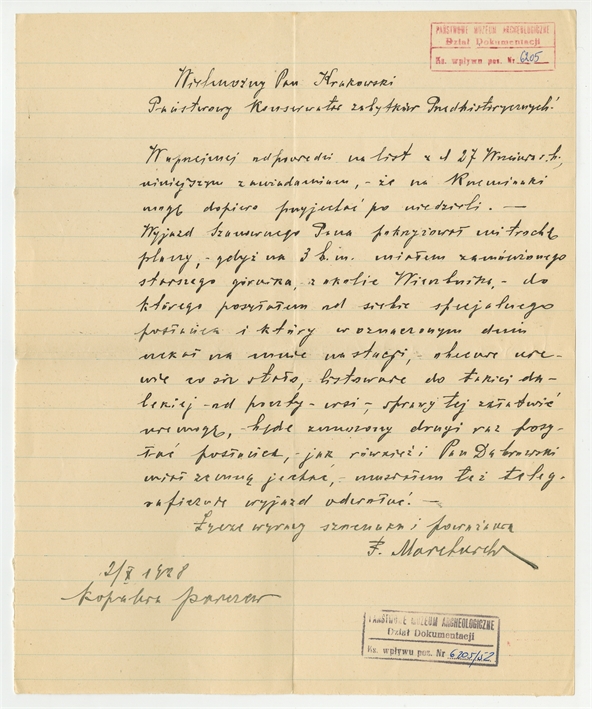 PAŃSTWOWE MUZEUM ARCHEOLOGICZNE
Dział Dokumentacji
Ks. wpływu poz. Nr 6205
Wielmożny Pan Krakowski
Państwowy Konserwator zabytków Przedhistorycznych
W uprzejmej odpowiedzi na list z d 27 Września r. b.,
niniejszym zawiadamiam, - że na Krzemionki
mogę dopiero przyjechać po niedzieli. —
Wyjazd Szanownego Pana pokrzyżował mi trochę
plany, - gdyż na 3 b. m. miałem zamówionego
starszego górnika, z okolic Wierzbnika, - do
którego posyłałem od siebie specjalnego
posłańca i który w oznaczonym dniu
czekał na mnie na stacji, - obecnie nie
wie co się stało, listownie do takiej da-
lekiej - od poczty - wsi -, sprawy tej załatwić
nie mogę, - będę zmuszony drugi raz posy-
łać posłańca, - jak również i Pan Dąbrowski
miał ze mną jechać, - musiałem też teleg-
raficznie wyjazd odwołać. —
Łączę wyrazy szacunku i poważania
2/X 1928
Kopalnia
PAŃSTWOWE MUZEUM ARCHEOLOGICZNE
Dział Dokumentacji
Ks. wpływu poz. Nr 6205/52